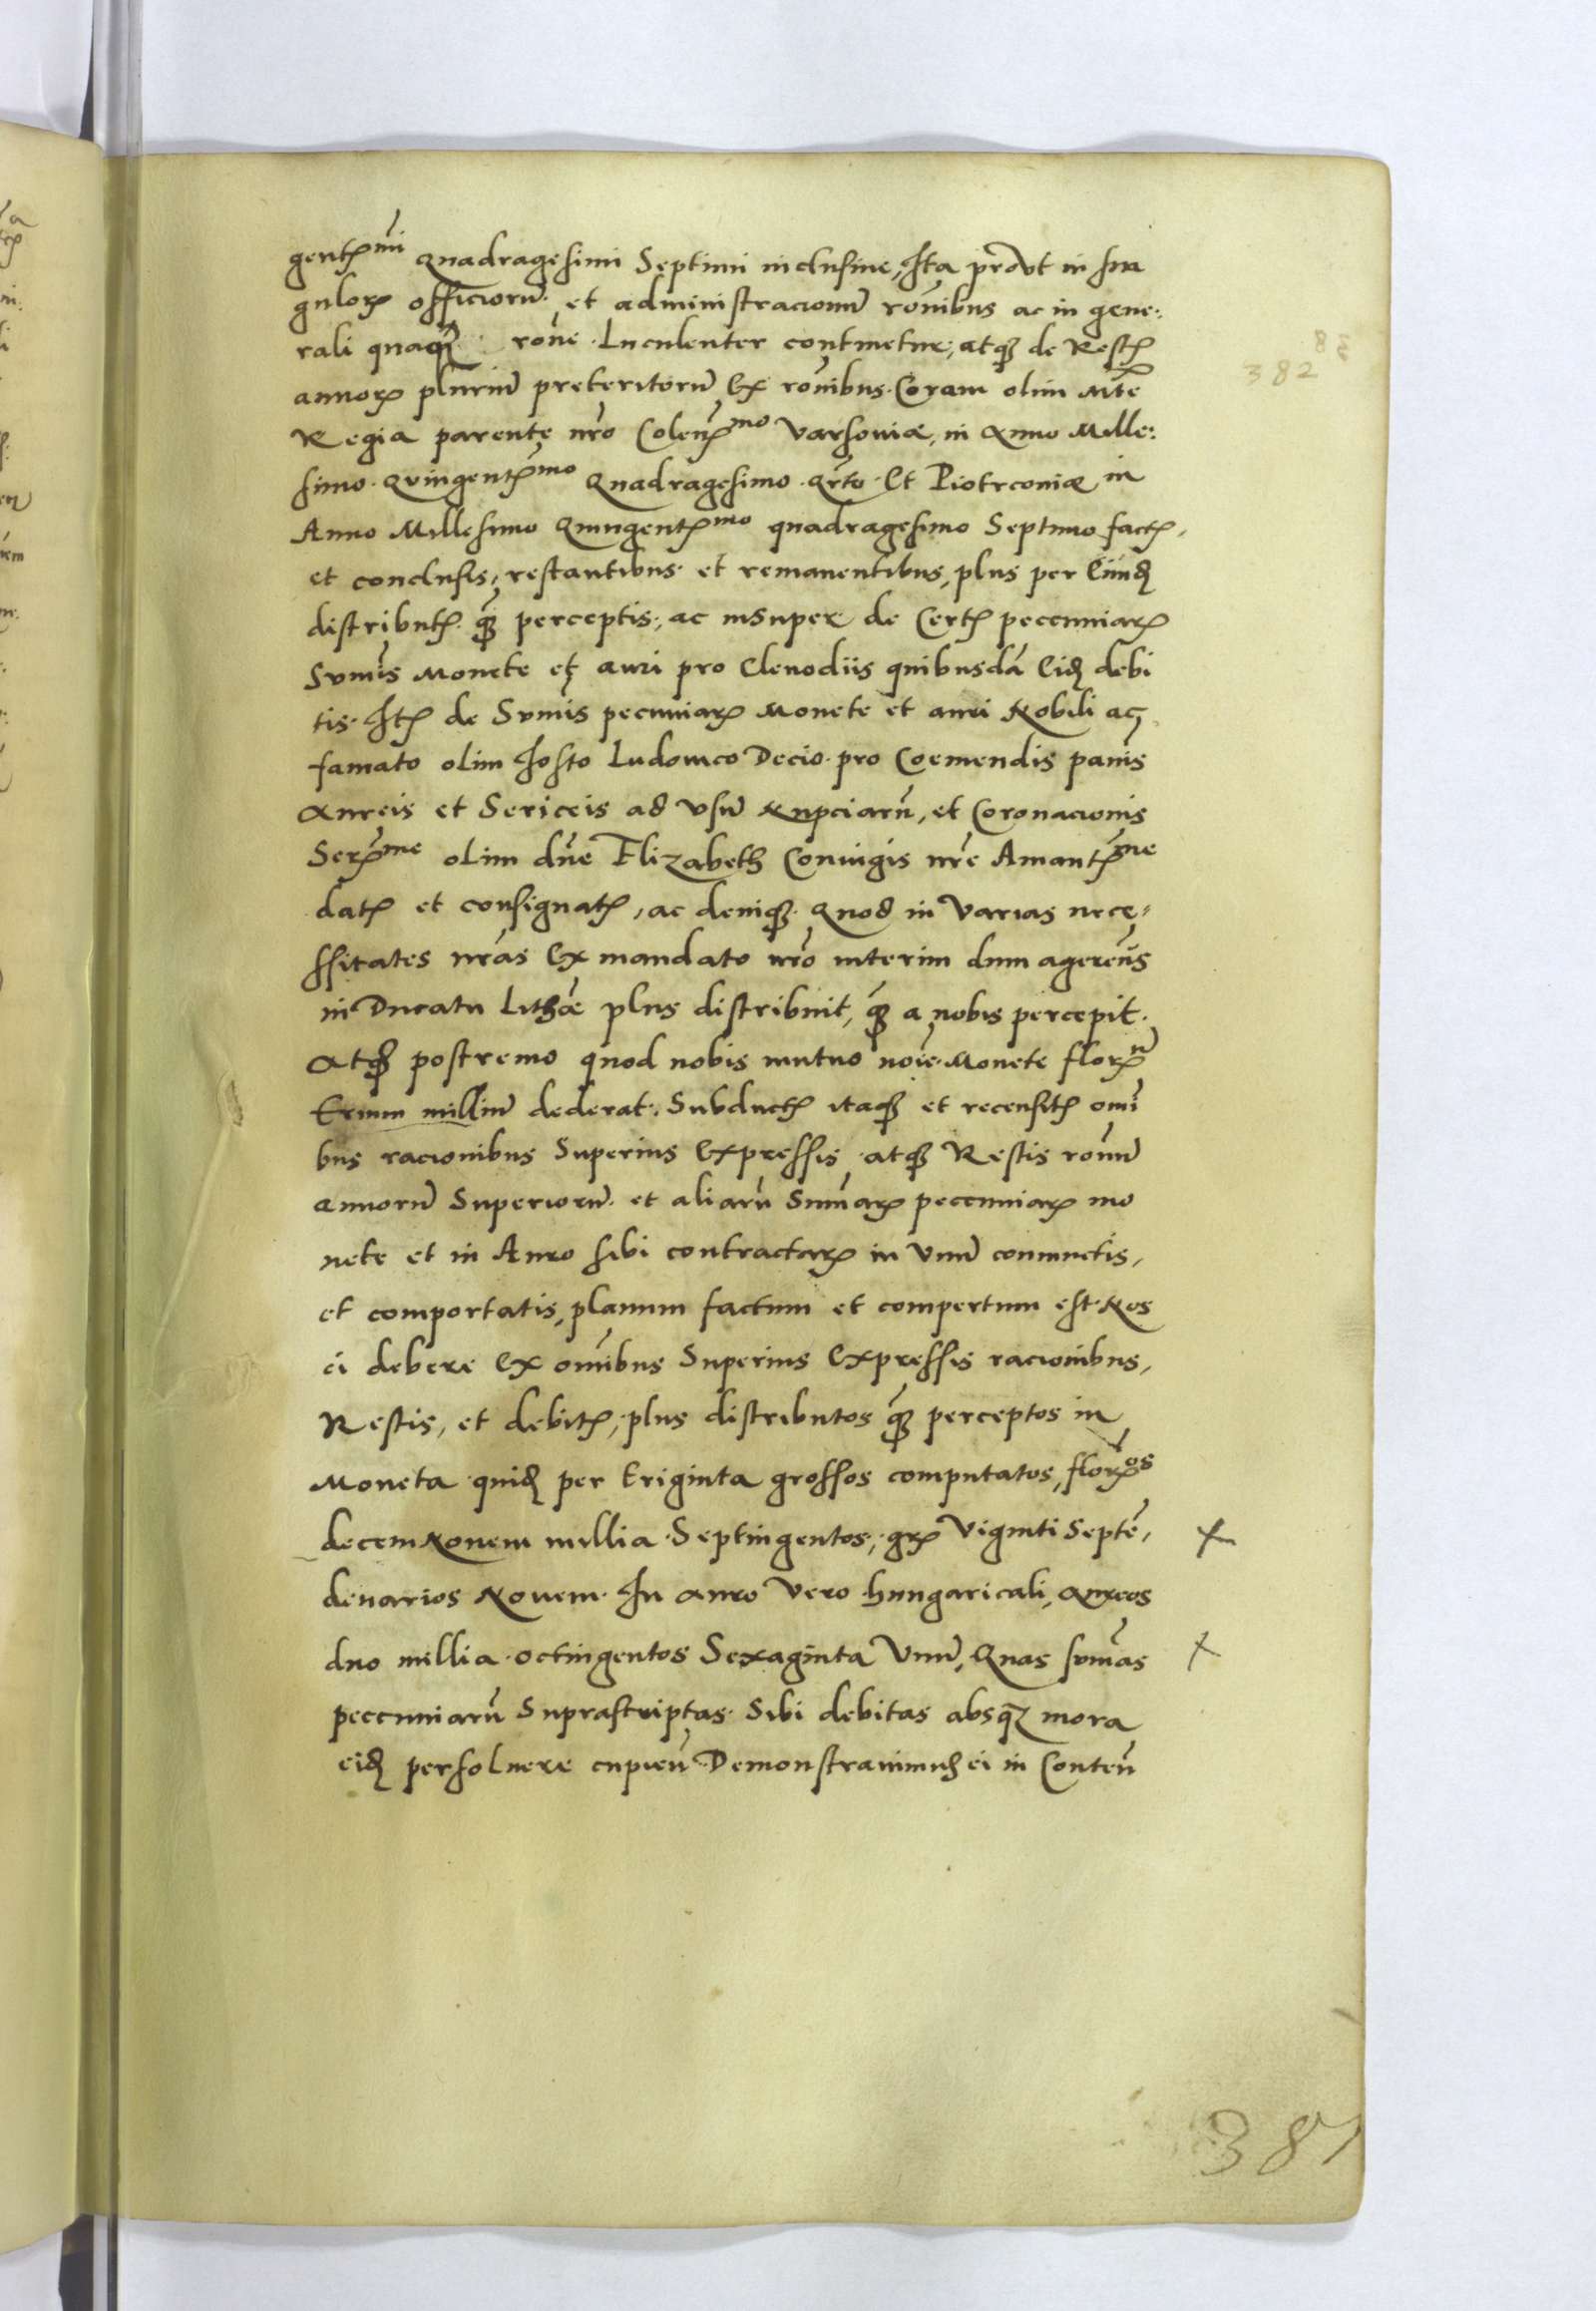 gentꝭmi Quadragesimi Septimi inclusiue, Ita prōut in sin
gulorꝝ officiorū et administracionū rōnibus ac in gene:
rali quāꝗꝫ rōne Luculenter continetur, atꝗꝫ de Restꝭ
annorꝝ pluriū preteritorū Ex rōnibus Coram olim Mte
Regia parente nrō Colenꝭmo Varsouiæ, in Anno Mille:
simo Quingentꝭmo Quadragesimo qrto Et Piotrcouiæ in
Anno Millesimo Quingentꝭmo quadragesimo Septimo factꝭ,
et conclusis, restantibus et remanentibus, plus per Eūnđ
distributꝭ ꝗꝫ perceptis, ac insuper de Certꝭ pecuniarꝝ
Sumīs Monete et auri pro Clenodiis quibusdā Eiđ debi
tis. Itꝭ de Sumīs pecuniarꝝ Monete et auri Nobili ac
famato olim Josto Ludouico Decio pro Coemendis panīs
Aureis et Sericeis ad vsū Nupciarū, et Coronacionis
Serꝭme olim dn̄e Elizabeth Coniugis nrē Amantꝭme
datꝭ et consignatꝭ, ac deniꝗꝫ Quod in varias nece-
ssitates nrās Ex mandato nrō interim dum agereūs
in Ducatu Lithæ plus distribuit, ꝗꝫ a nobis percepit.
Atꝗꝫ postremo quod nobis mutuo noīe Monete florꝝ
trium milliū dederat. Subductꝭ itaꝗꝫ et recensitꝭ omī
bus racionibus Superius Expressis atꝗꝫ Restis ronū
annorū Superiorū et aliarū Sumarꝝ pecuniarꝝ mo
nete et in Auro sibi contractarꝝ in Vnū coniunctis,
et comportatis, planum factum et compertum est Nos
ei debere Ex omībus Superius Expressis racionibus,
Restis, et debitꝭ, plus distributos ꝗꝫ perceptos in
Moneta quiđ per triginta grossos computatos, florꝭos
decem Nouem millia Septingentos, grꝭ Viginti Septē,
denarios Nouem. In auro vero hungaricali, Aureos
duo millia octingentos Sexaginta Vnū, Quas sumās
pecuniarū Suprascriptas Sibi debitas absꝗꝫ mora
eiđ persoluere cupieū Demonstrauimus ei in Conteū
382
381